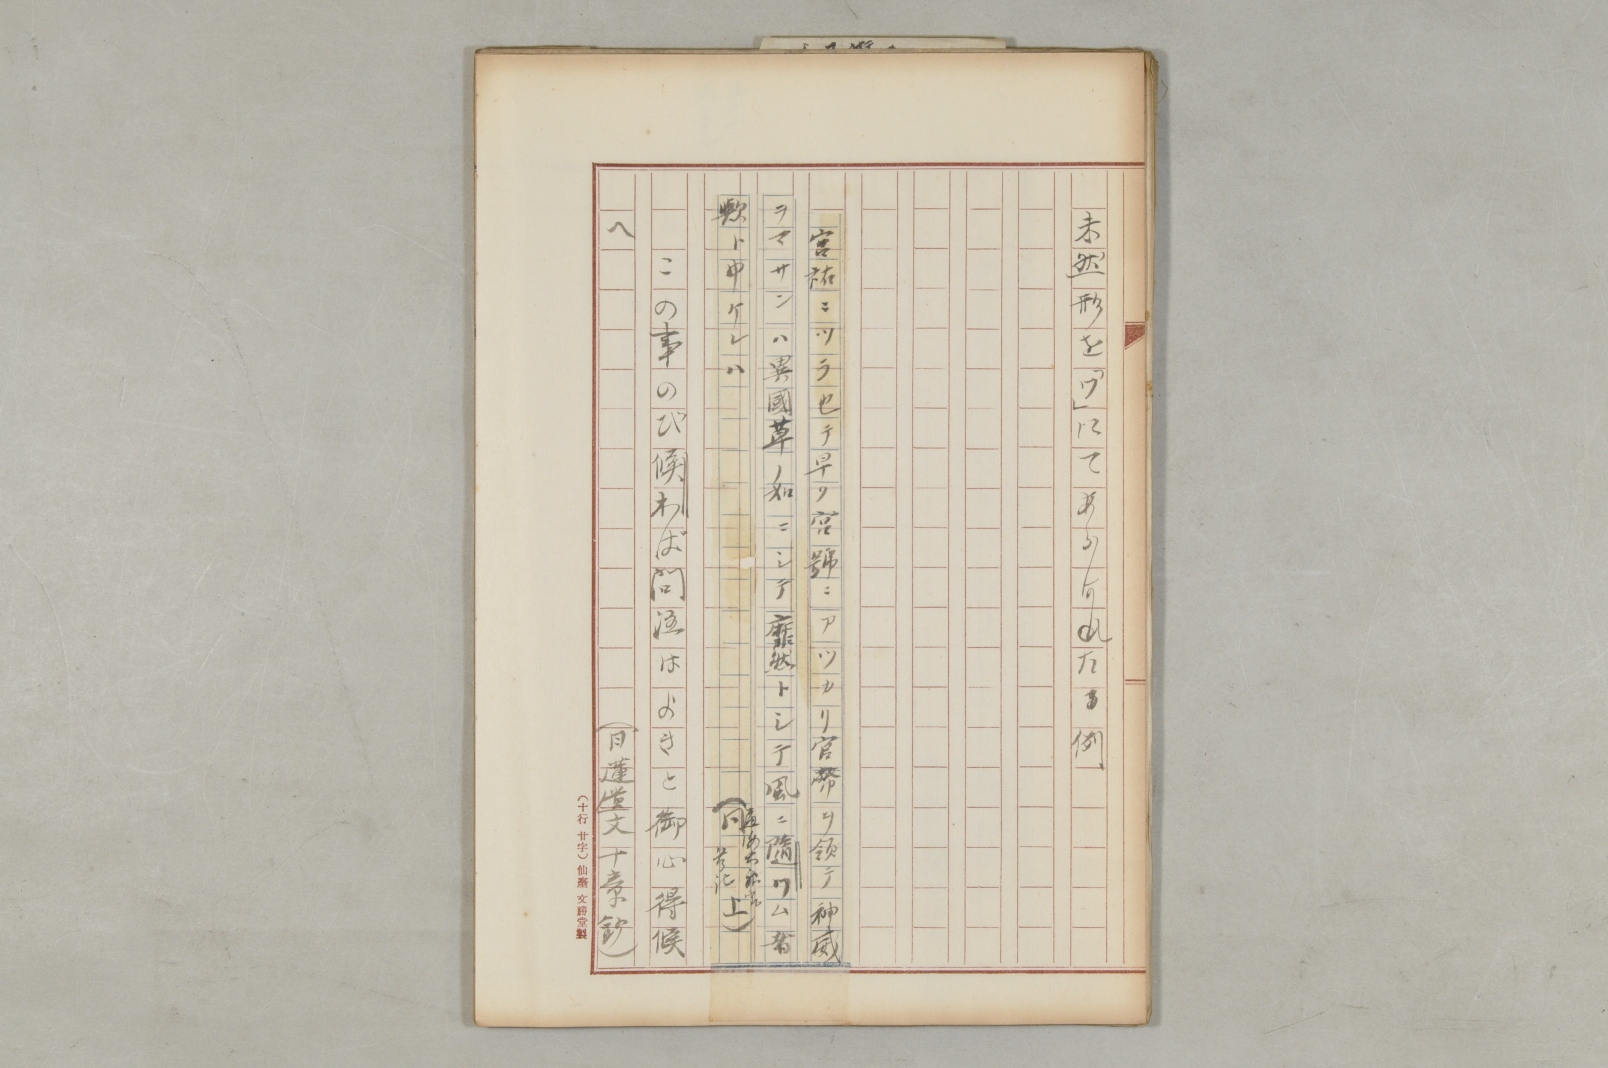 未然形を「ワ」にてあらはされたる例
宮祐ニツラ也テ早ク宮號ニアツカリ官幣ヲ領テ神威
ラマサンハ異國草ノ如ニシテ靡然トシテ風ニ隨ワム者
歟ト申ケレハ
上)
この事のび候わば問注はよきと御心得候
へ
(日蓮遺文十章鈔)
(十行 廿字) 仙臺 文勝堂製